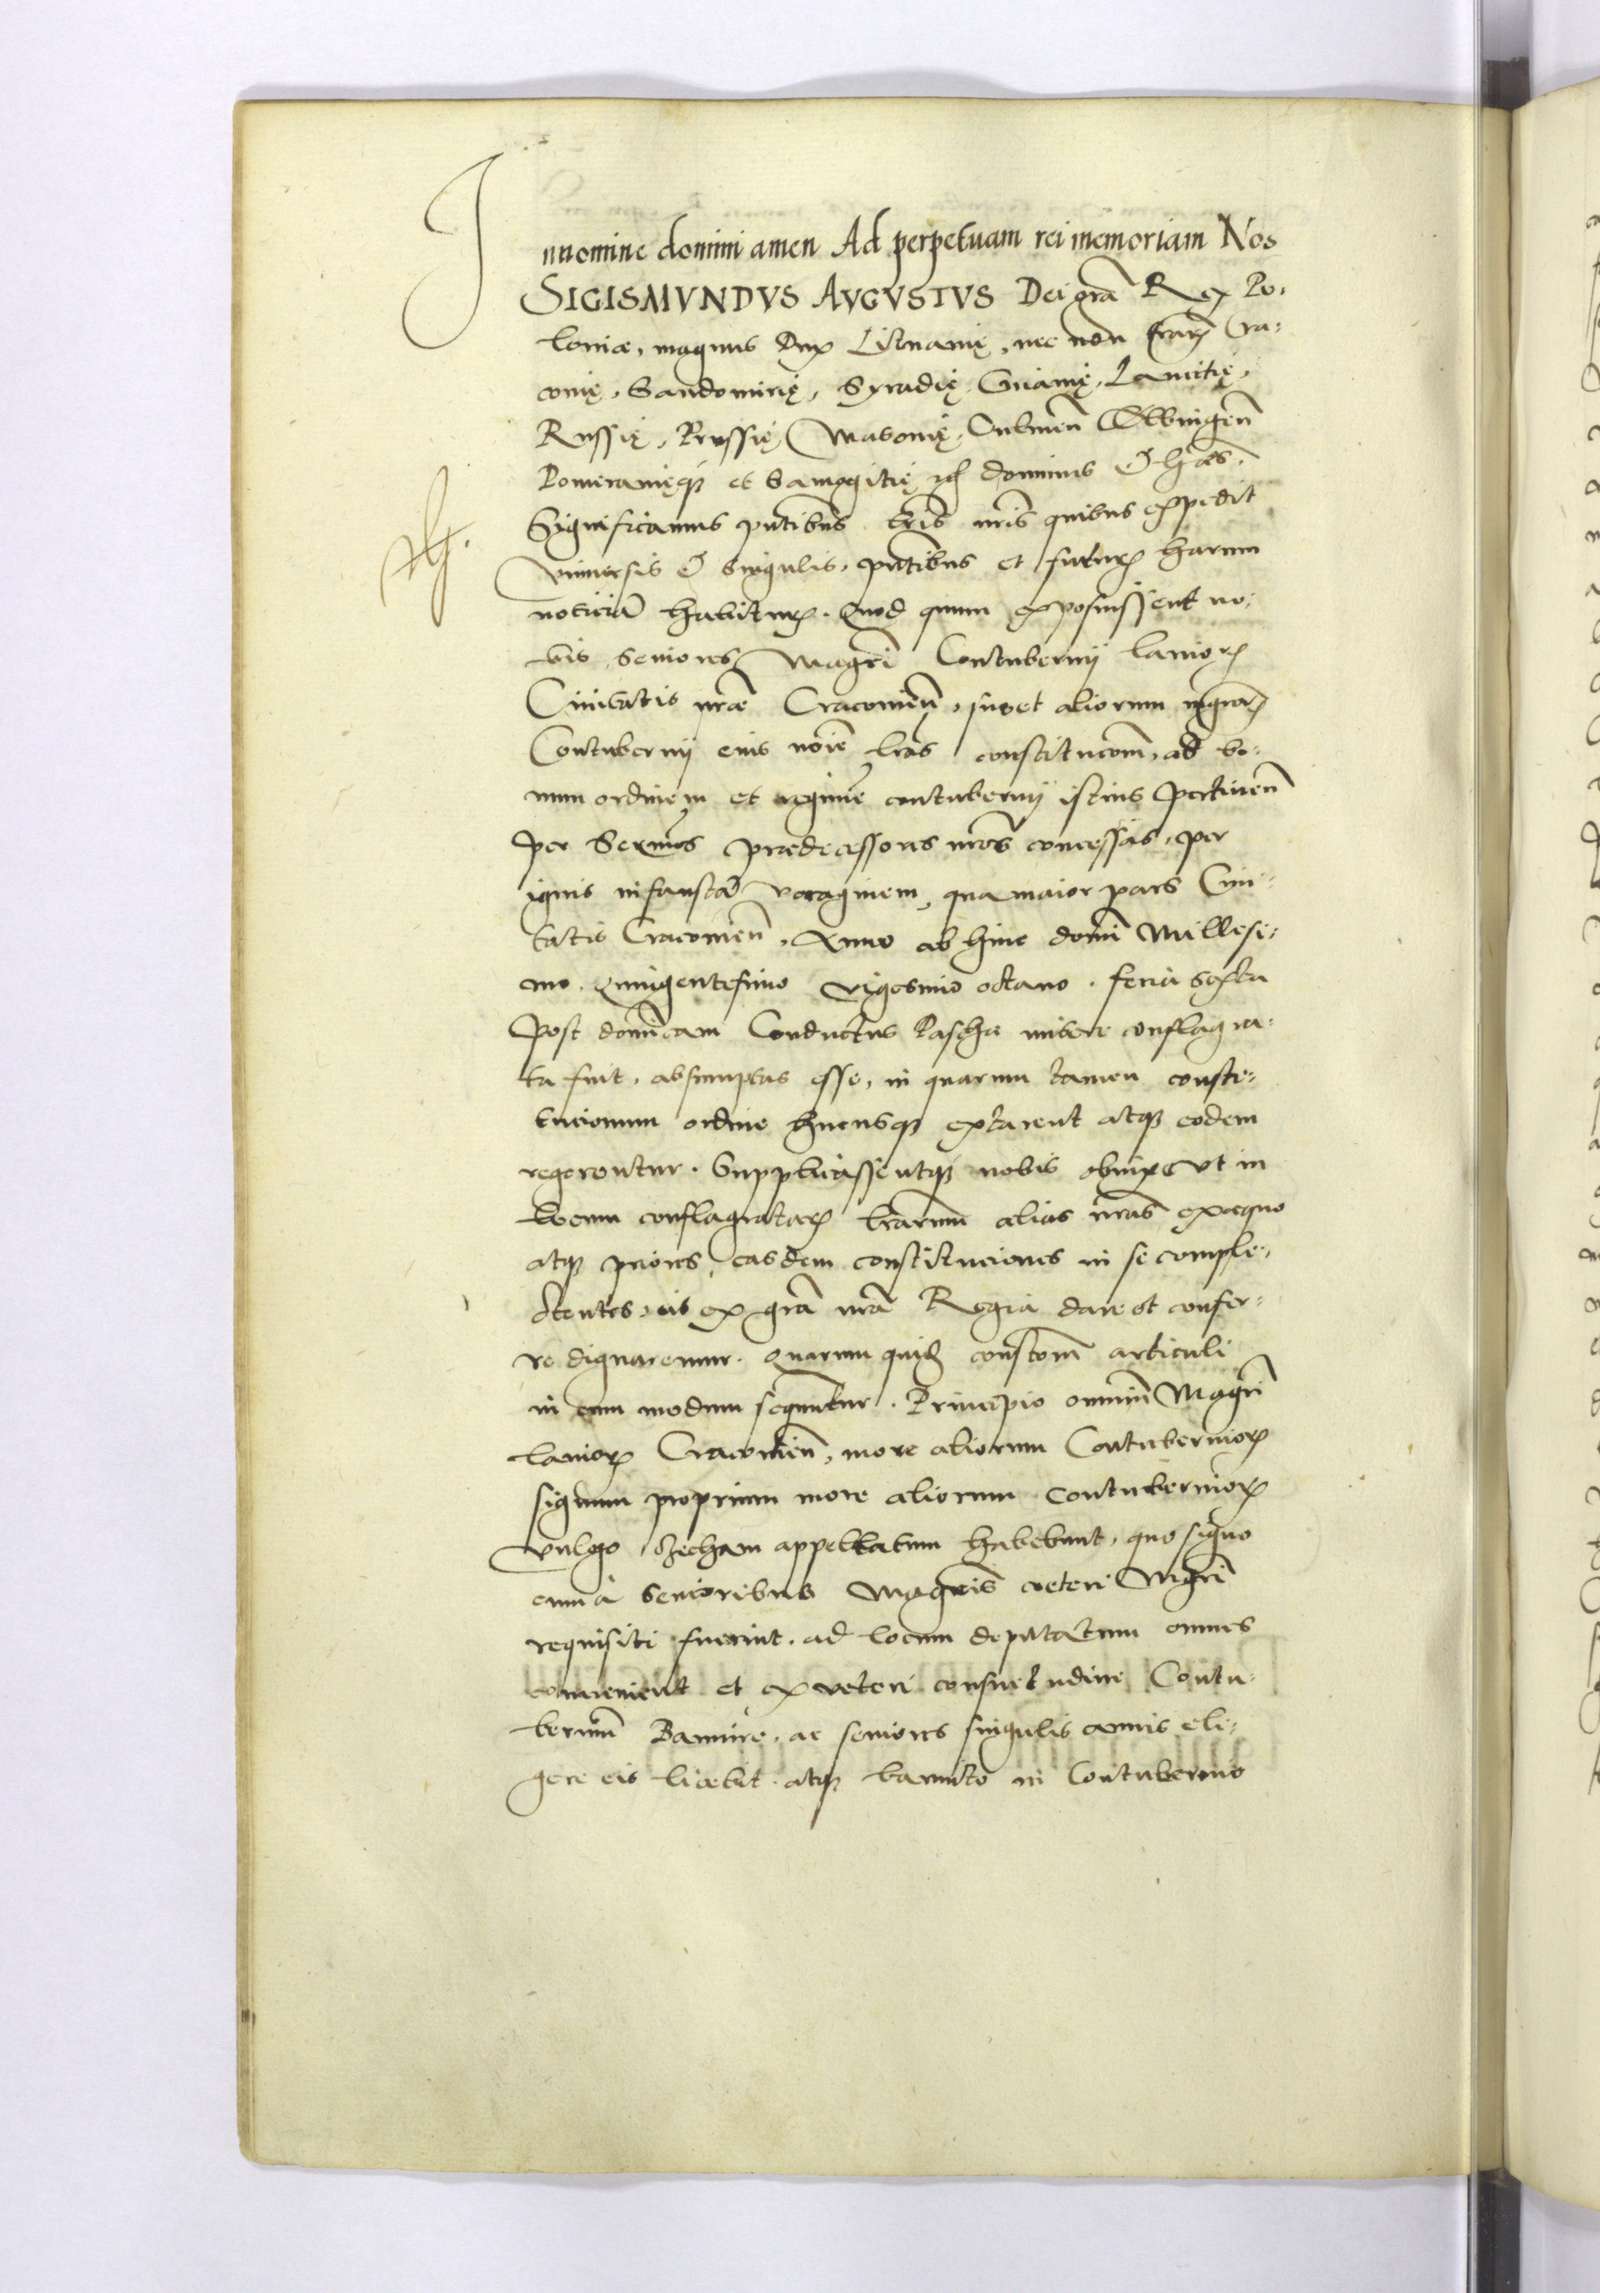 In nomine domini amen Ad perpetuam rei memoriam Nos
SIGISMVNDVS AVGVSTVS Dei gra͂ Rex Po-
loniæ, magnus Dux Lithuanię, nec non terraꝝ Cra-
conię, Sandomirię, Syradię, Cuiauię, Lancitię,
Russię, Prussię, Masouię, Culmen͂ Elbingen͂
Pomeranięqꝫ et Samogitię &c dominus & hæres.
Significamus pn͂tibus lr͂is nr͂is quibus expedit
vniuersis & singulis, pn͂tibus et futuꝝ harum
noticia͂ habituꝝ. Quod quum exposuissent no-
bis seniores Magr͂i Contubernij lanioꝝ
Ciuitatis nr͂æ Cracouien͂, suo et aliorum mgr͂oꝝ
Contubernij eius no͂ie lr͂as constitucom͂, ad bo-
num ordinem et regime͂ contubernij istius pertinen͂
per Sereniss͂os prædecessores nr͂os concessas, per
ignis infausta͂ voraginem, qua maior pars Ciui-
tatis Cracouien͂, Anno ab hinc domi͂ Millesi-
mo Quingentesimo vigesimo octauo, feria sexta
post domi͂cam Conductus Pascha misere conflagra-
ta fuit, absumptas esse, in quarum tamen consti-
tucionum ordine hucusqꝫ extarent atqꝫ eodem
regerentur. Supplicassentqꝫ nobis obnixe vt in
locum conflagrataꝝ lr͂arum alias nr͂as ex æquo
atqꝫ priores, easdem constituciones in se comple-
ctentes, eis ex gr͂a nr͂a Regia dare et confer-
re dignaremur. Quarum quidē constcom͂ articuli
in eum modum sequuntur. Principio omniu͂ Magr͂i
lanioꝝ Cracouien͂, more aliorum Contubernioꝝ
signum proprium more aliorum contubernioꝝ
vulgo Czecham appellatum habebunt, quo signo
cum à senioribus Magr͂is cæteri Mgr͂i
requisiti fuerint, ad locum deputatum omnes
conuenient et ex veteri consuetudine Contu-
berniu͂ Bannire, ac seniores singulis annis eli-
gere eis licebit, atqꝫ bannito in Contubernio